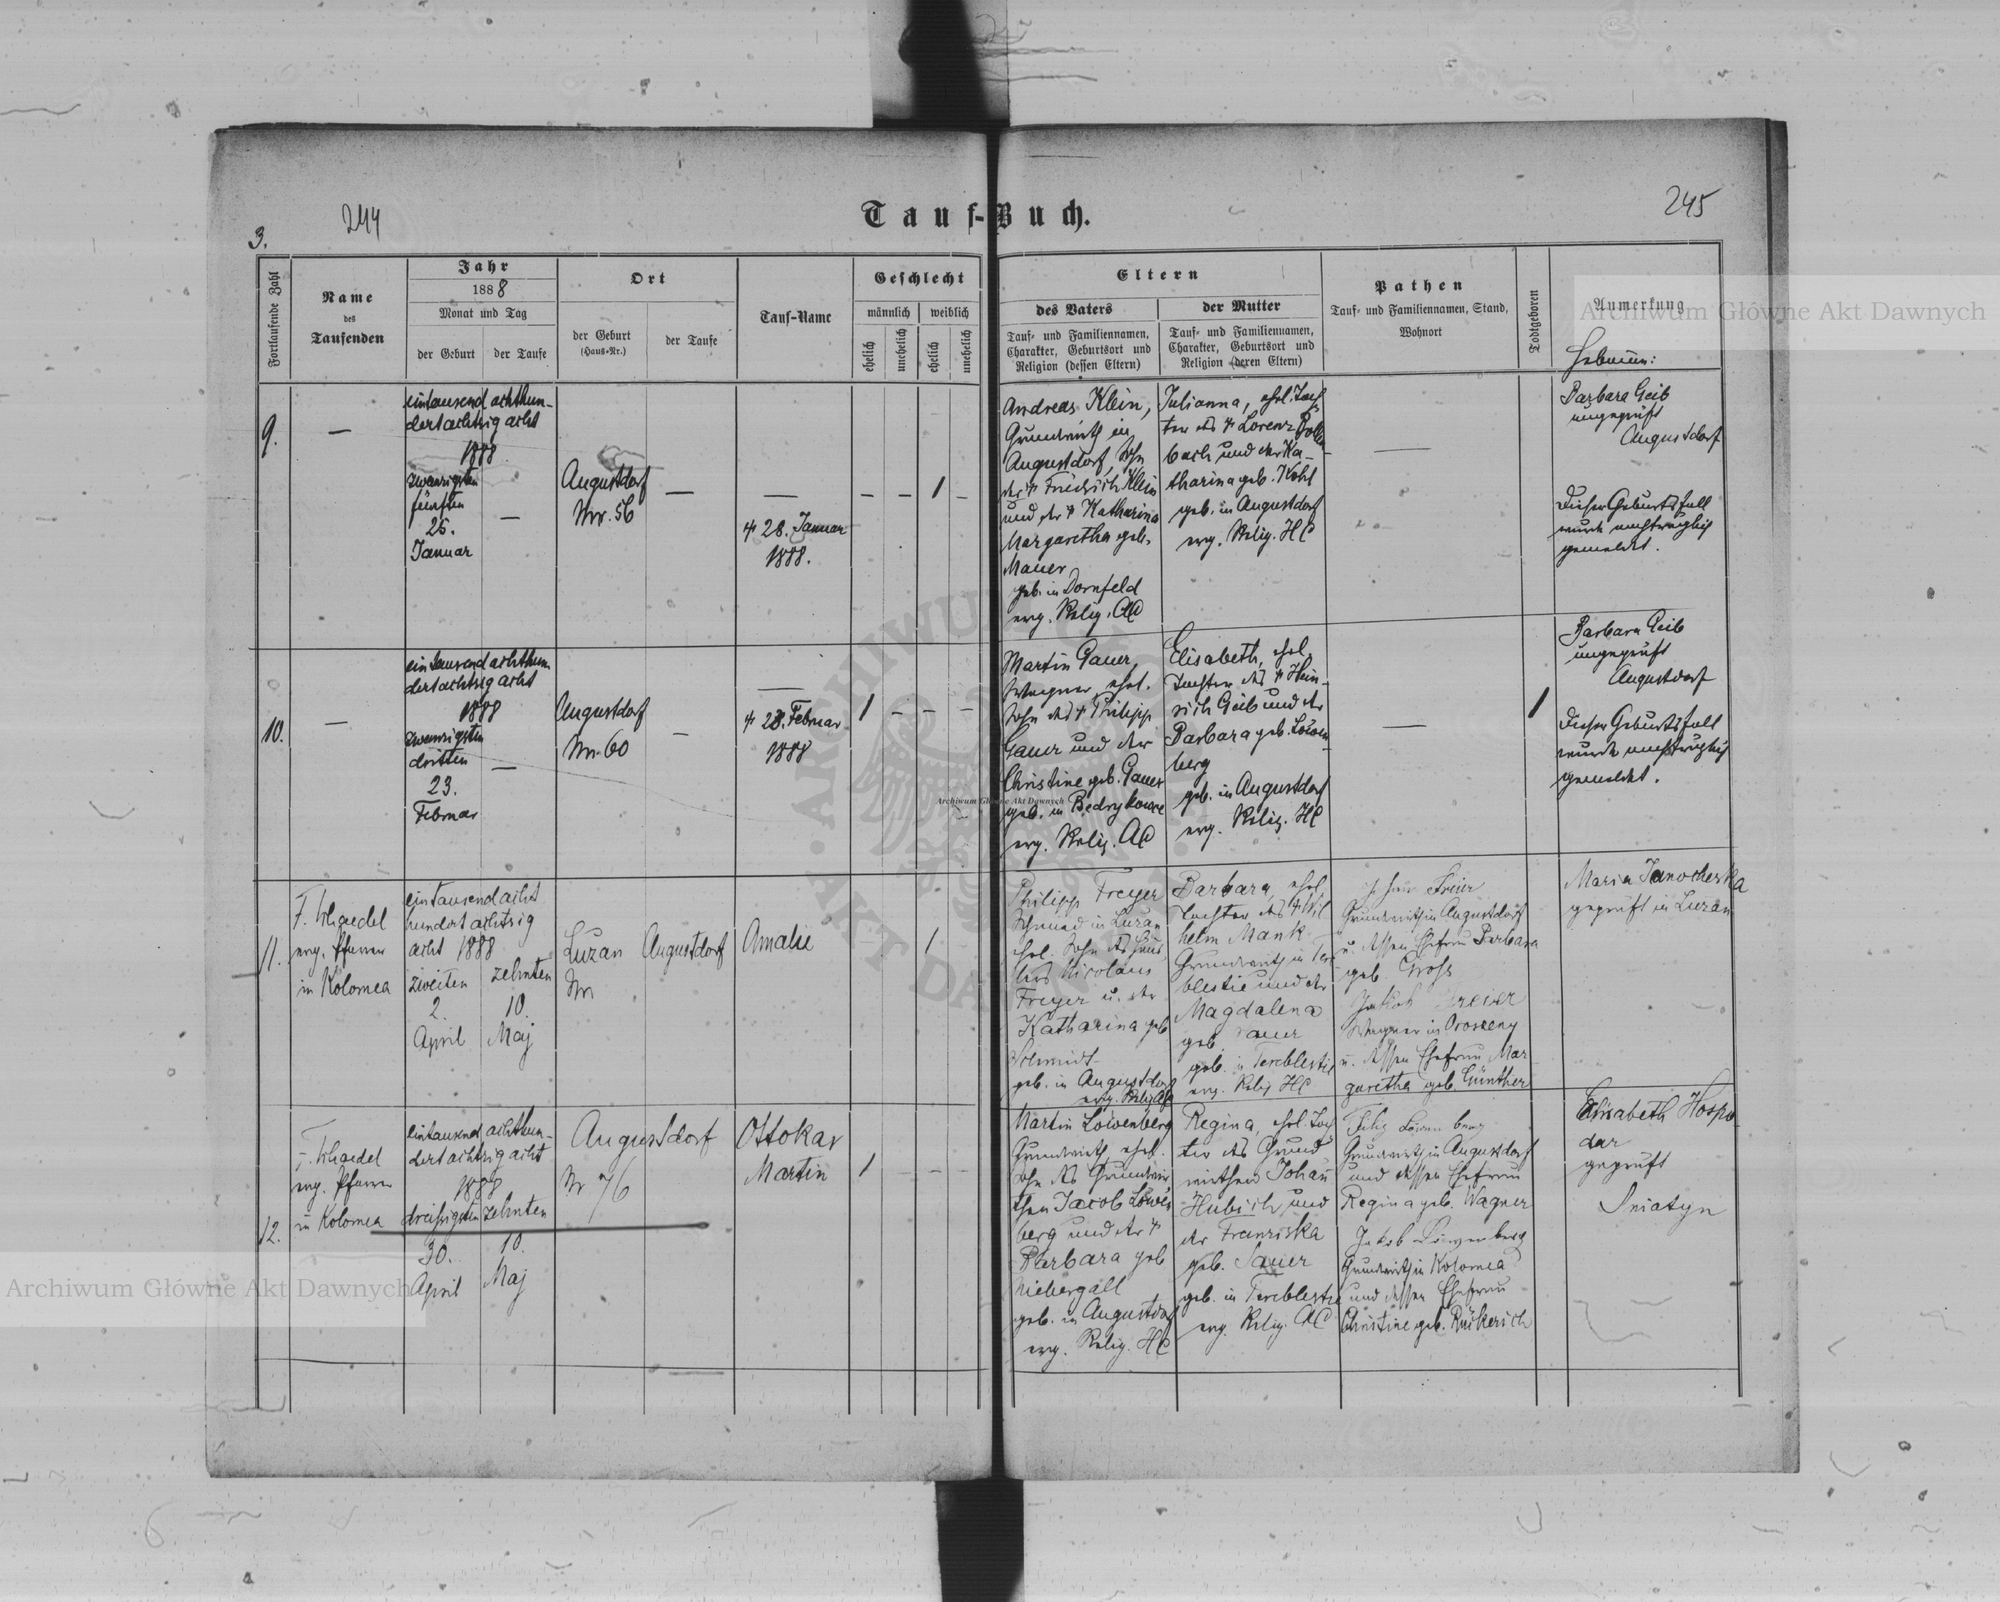 244
245
3.
Tauf-Buch.
Fortlaufende Zahl
Name
des
Taufenden
Jahr
1888
Monat und Tag
der Geburt
der Taufe
Ort
der Geburt
(Haus-Nr.)
der Taufe
Tauf-Name
Geschlecht
männlich
weiblich
ehelich
unehelich
ehelich
unehelich
Eltern
des Vaters
Tauf- und Familiennamen,
Charakter, Geburtsort und
Religion (dessen Eltern)
der Mutter
Tauf- und Familiennamen,
Charakter, Geburtsort und
Religion (deren Eltern)
Pathen
Tauf- und Familiennamen, Stand,
Wohnort
Todtgeboren
Anmerkung
9.
—
eintausend achthun-
dertachtzig acht
1888
zwanzigsten
fünften
25.
Januar
—
Augustdorf
Nro. 56
—
—
28. Januar
1888.
1
Andreas Klein,
Grundwirth in
Augustdorf, Sohn
des † Friedrich Klein
und der † Katharina
Margaretha geb.
Mauer
geb. in Dornfeld
evg. Relig. AC
Julianna, ehel. Toch-
ter des † Lorenz
bach und der Ka-
tharina geb. Kohl
geb. in Augustdorf
evg. Relig. HC
—
Barbara Geib
ungeprüft
Augustdorf
Dieser Geburtsfall
wurde nachträglich
gemeldet.
10.
—
eintausend achthun
dertachtzig acht
1888
zwanzigsten
dritten
23.
Februar
—
Augustdorf
Nro. 60
—
—
28. Februar
1888
1
Martin Gauer,
Wagner, ehel.
Sohn des † Philipp
Gauer und der
Christine geb. Gauer
geb. in Bedrykowce
evg. Relig. AC
Elisabeth, ehel.
Tochter des † Hein-
rich Geib und der
Barbara geb. Löwen
berg
geb. in Augustdorf
evg. Relig. HC
—
1
Barbara Geib
ungeprüft
Augustdorf
Dieser Geburtsfall
wurde nachträglich
gemeldet.
11.
evg. Pfarrer
in Kolomea
eintausend acht
hundert achtzig
acht 1888
zweiten
2.
April
zehnten
10.
Maj
Luzan
Nro
Augustdorf
Amalie
1
Philipp Freyer
Schmied in Luzan
ehel. Sohn des
Nicolaus
Freyer u. der
Katharina geb
Schmidt
geb. in Augustdorf
evg. Relig AC
Barbara, ehel.
Tochter des † Wil
helm Mank
Grundwirth in Ter
blestie und der
Magdalena
geb.
geb. in Tereblestie
evg. Relig HC
Freier
Grundwirth in Augustdorf
u. dessen Ehefrau Barbara
geb. Groß
Jakob Freier
Wagner in Oroszeny
u. dessen Ehefrau Mar
garetha geb. Günther
Maria Janocherska
geprüft in Luzan
12.
evg. Pfarrer
in Kolomea
eintausend achthun-
dertachtzig acht
1888
dreißigsten
30.
April
zehnten
10.
Maj
Augustdorf
Nr 76
Ottokar
Martin
1
Martin Löwenberg
Grundwirth, ehel.
Sohn des Grundwir
then Jacob Löwen
berg und der †
Barbara geb
Niebergall
geb. in Augustdorf
evg. Relig. HC
Regina, ehel. Toch
ter des Grund
wirthen Johann
Hubich und
der Franziska
geb. Sauer
geb. in Tereblestie
evg. Relig. AC
Filip Löwenberg
Grundwirth in Augustdorf
und dessen Ehefrau
Regina geb. Wagner
Jakob Löwenberg
Grundwirth in Kolomea
und dessen Ehefrau
Christine geb.
Elisabeth Hospo
dar
geprüft
Sniatyn
Archiwum Główne Akt Dawnych
Archiwum Główne Akt Dawnych
Archiwum Główne Akt Dawnych